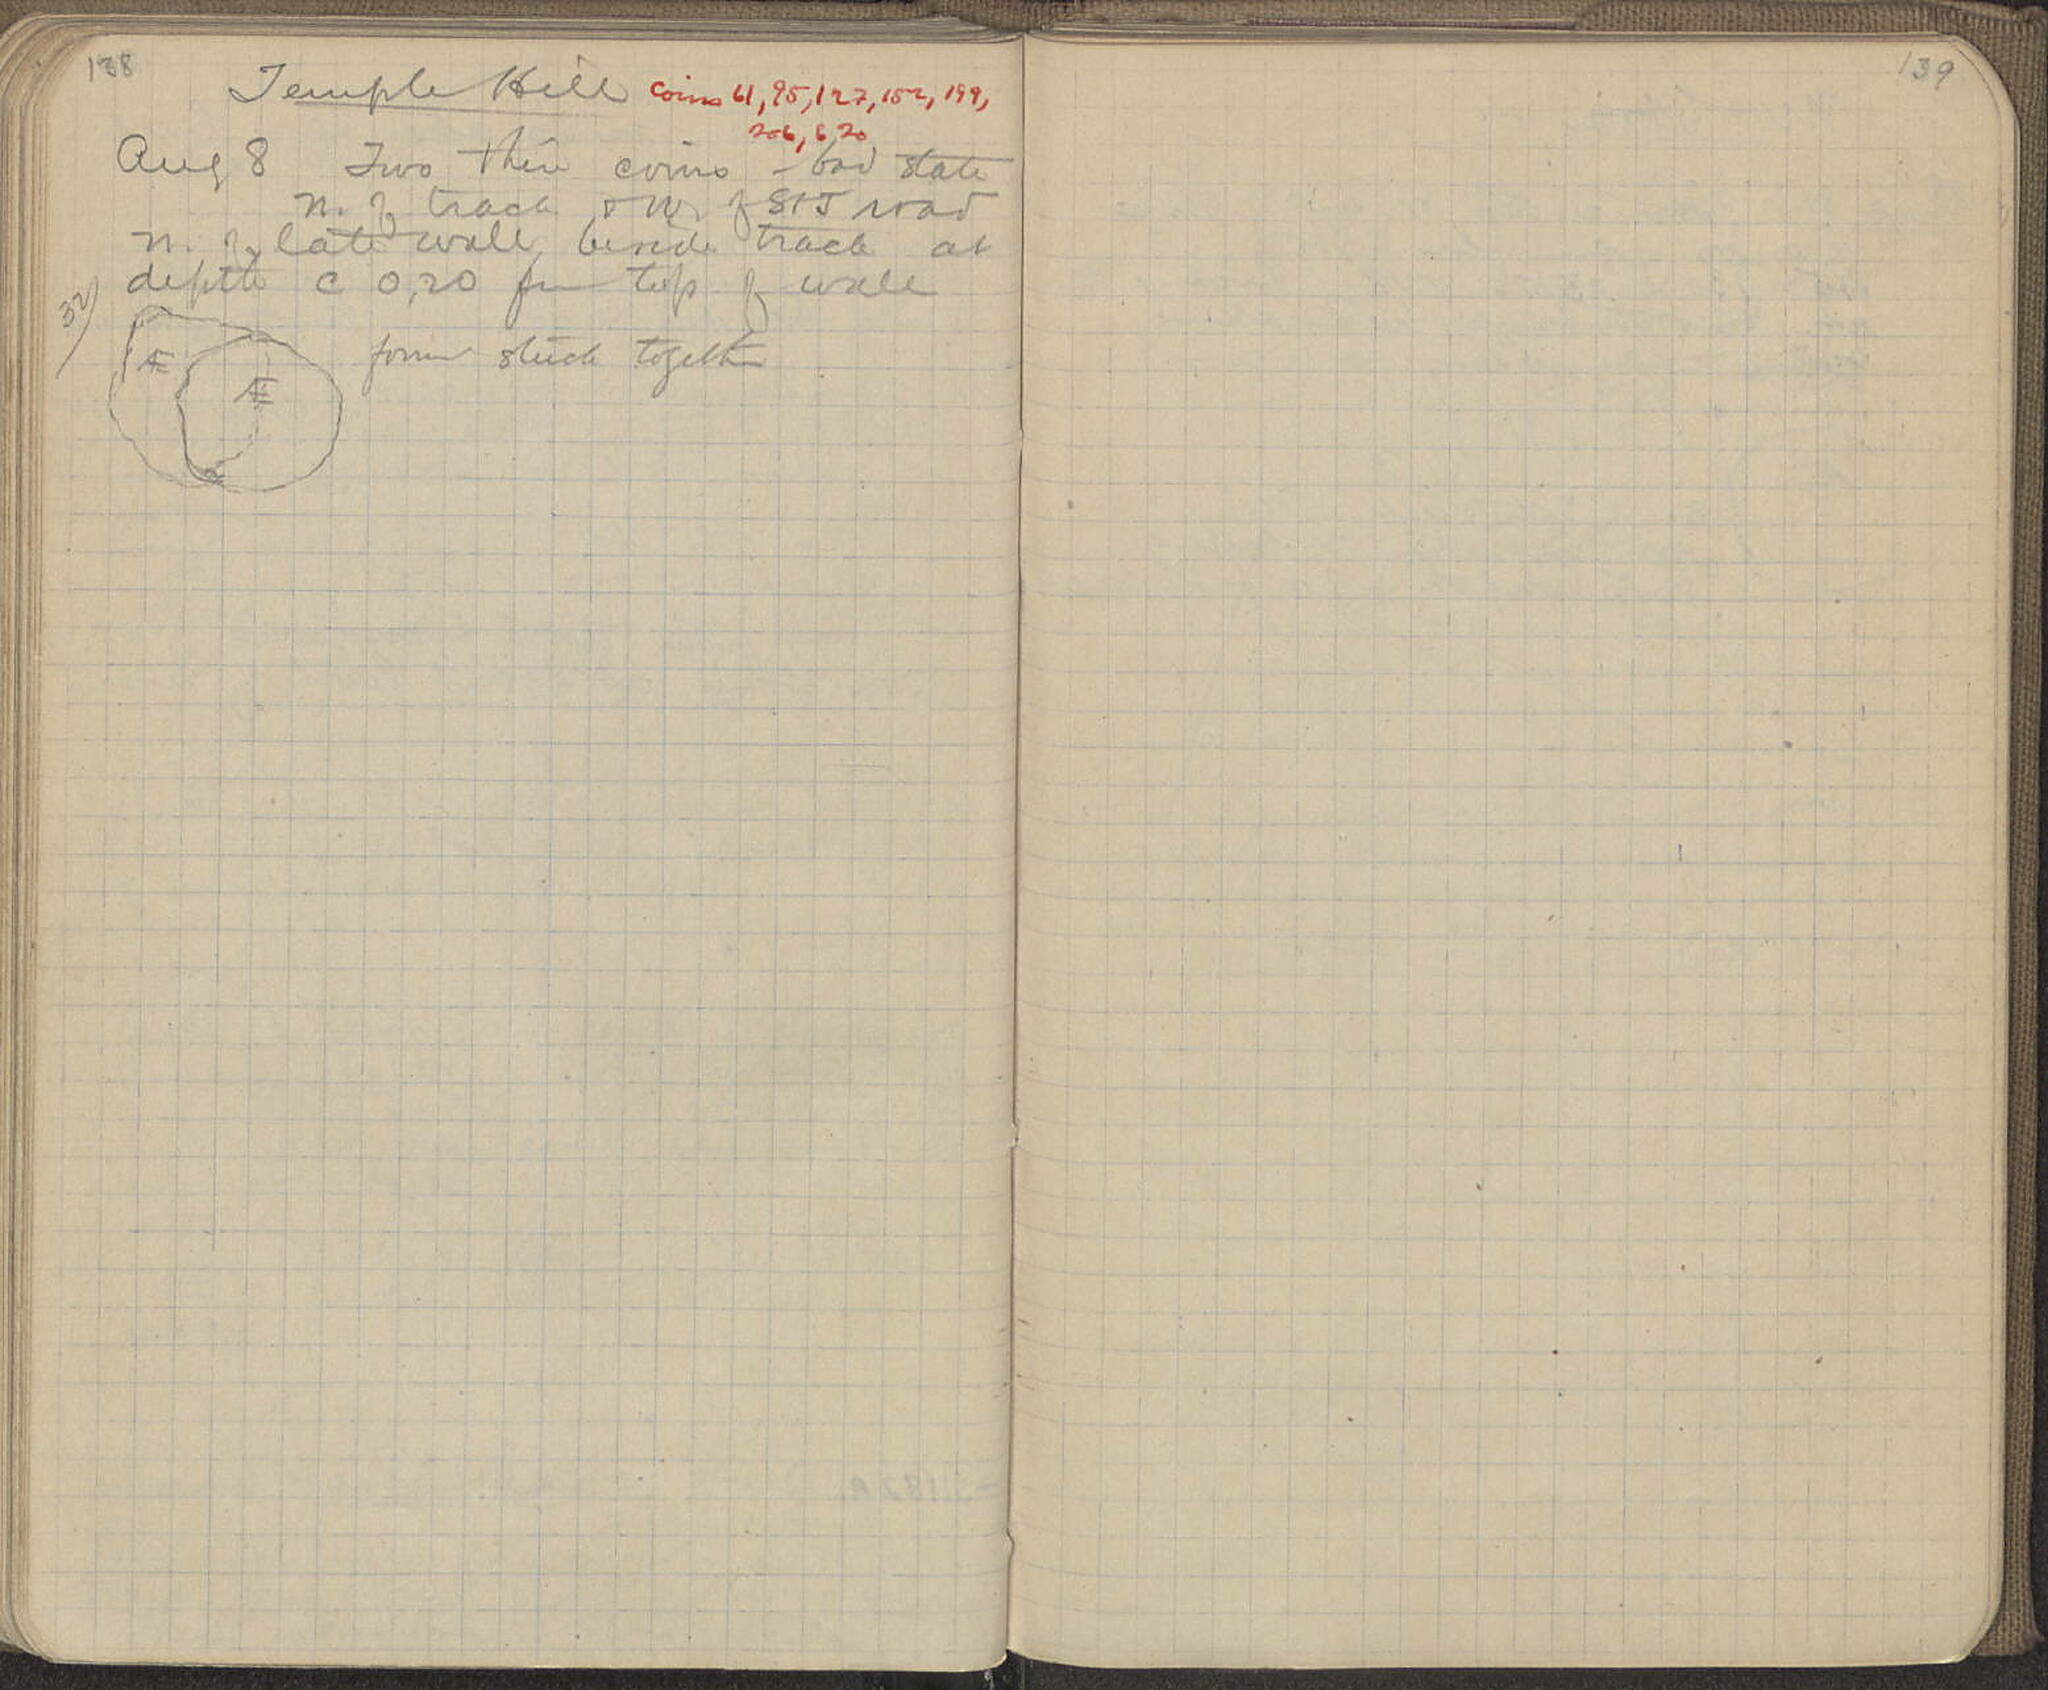 138
Temple Hill coins 61, 95, 127, 152, 199,
206, 620
Aug 8 Two thin coins - bad state
N. of track & W. of road
N. of late wall beside track at
depth c 0,20 fm top of wall
32)
Æ
Æ
stuck together
139